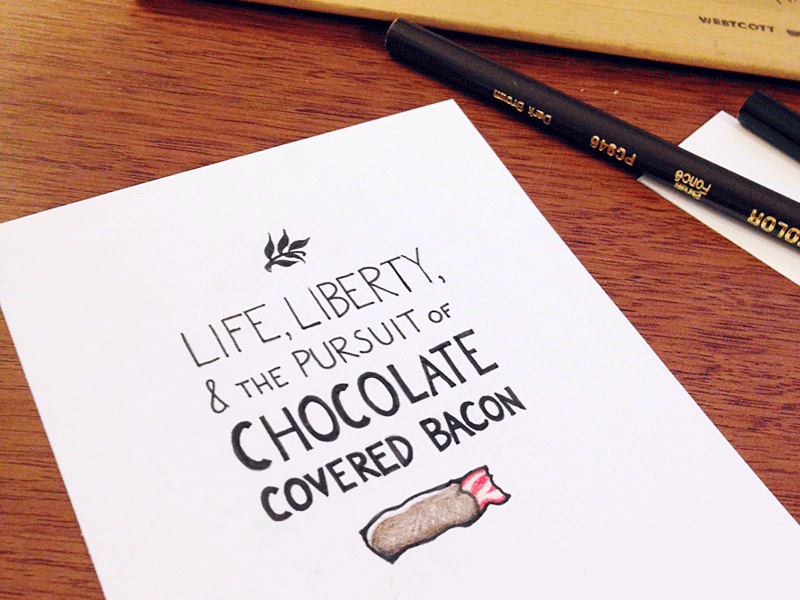 LIFE, LIBERTY,
& THE PURSUIT OF
CHOCOLATE
COVERED BACON
WESTCOTT
Dark Brown
PC946
COLOR